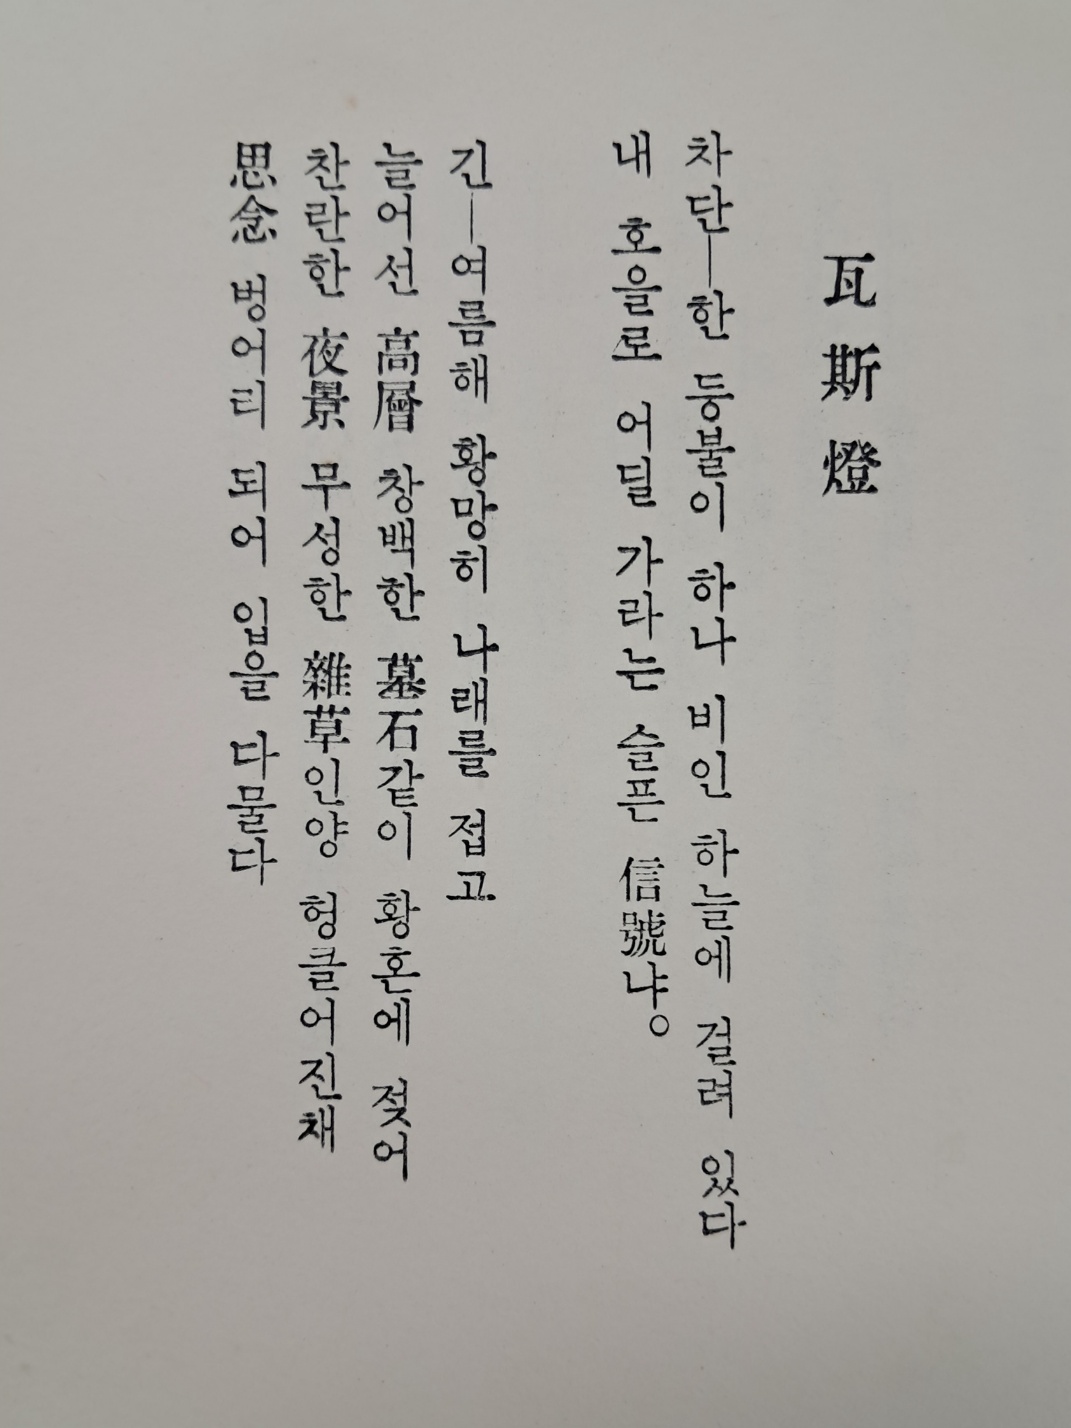 瓦斯燈
차단―한 등불이 하나 비인 하늘에 걸려 있다
내 호을로 어딜 가라는 슬픈 信號냐。
긴―여름해 황망히 나래를 접고
늘어선 高層 창백한 墓石같이 황혼에 젖어
찬란한 夜景 무성한 雜草인양 헝클어진채
思念 벙어리 되어 입을 다물다